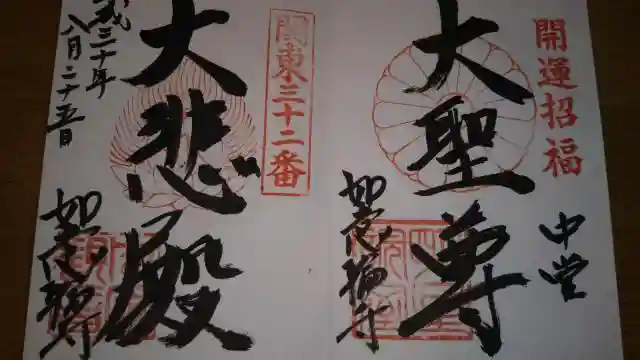 開運招福
大聖尊
中堂
如意輪寺
関東三十二番
大悲殿
平成三十年
八月二十五日
如意輪寺